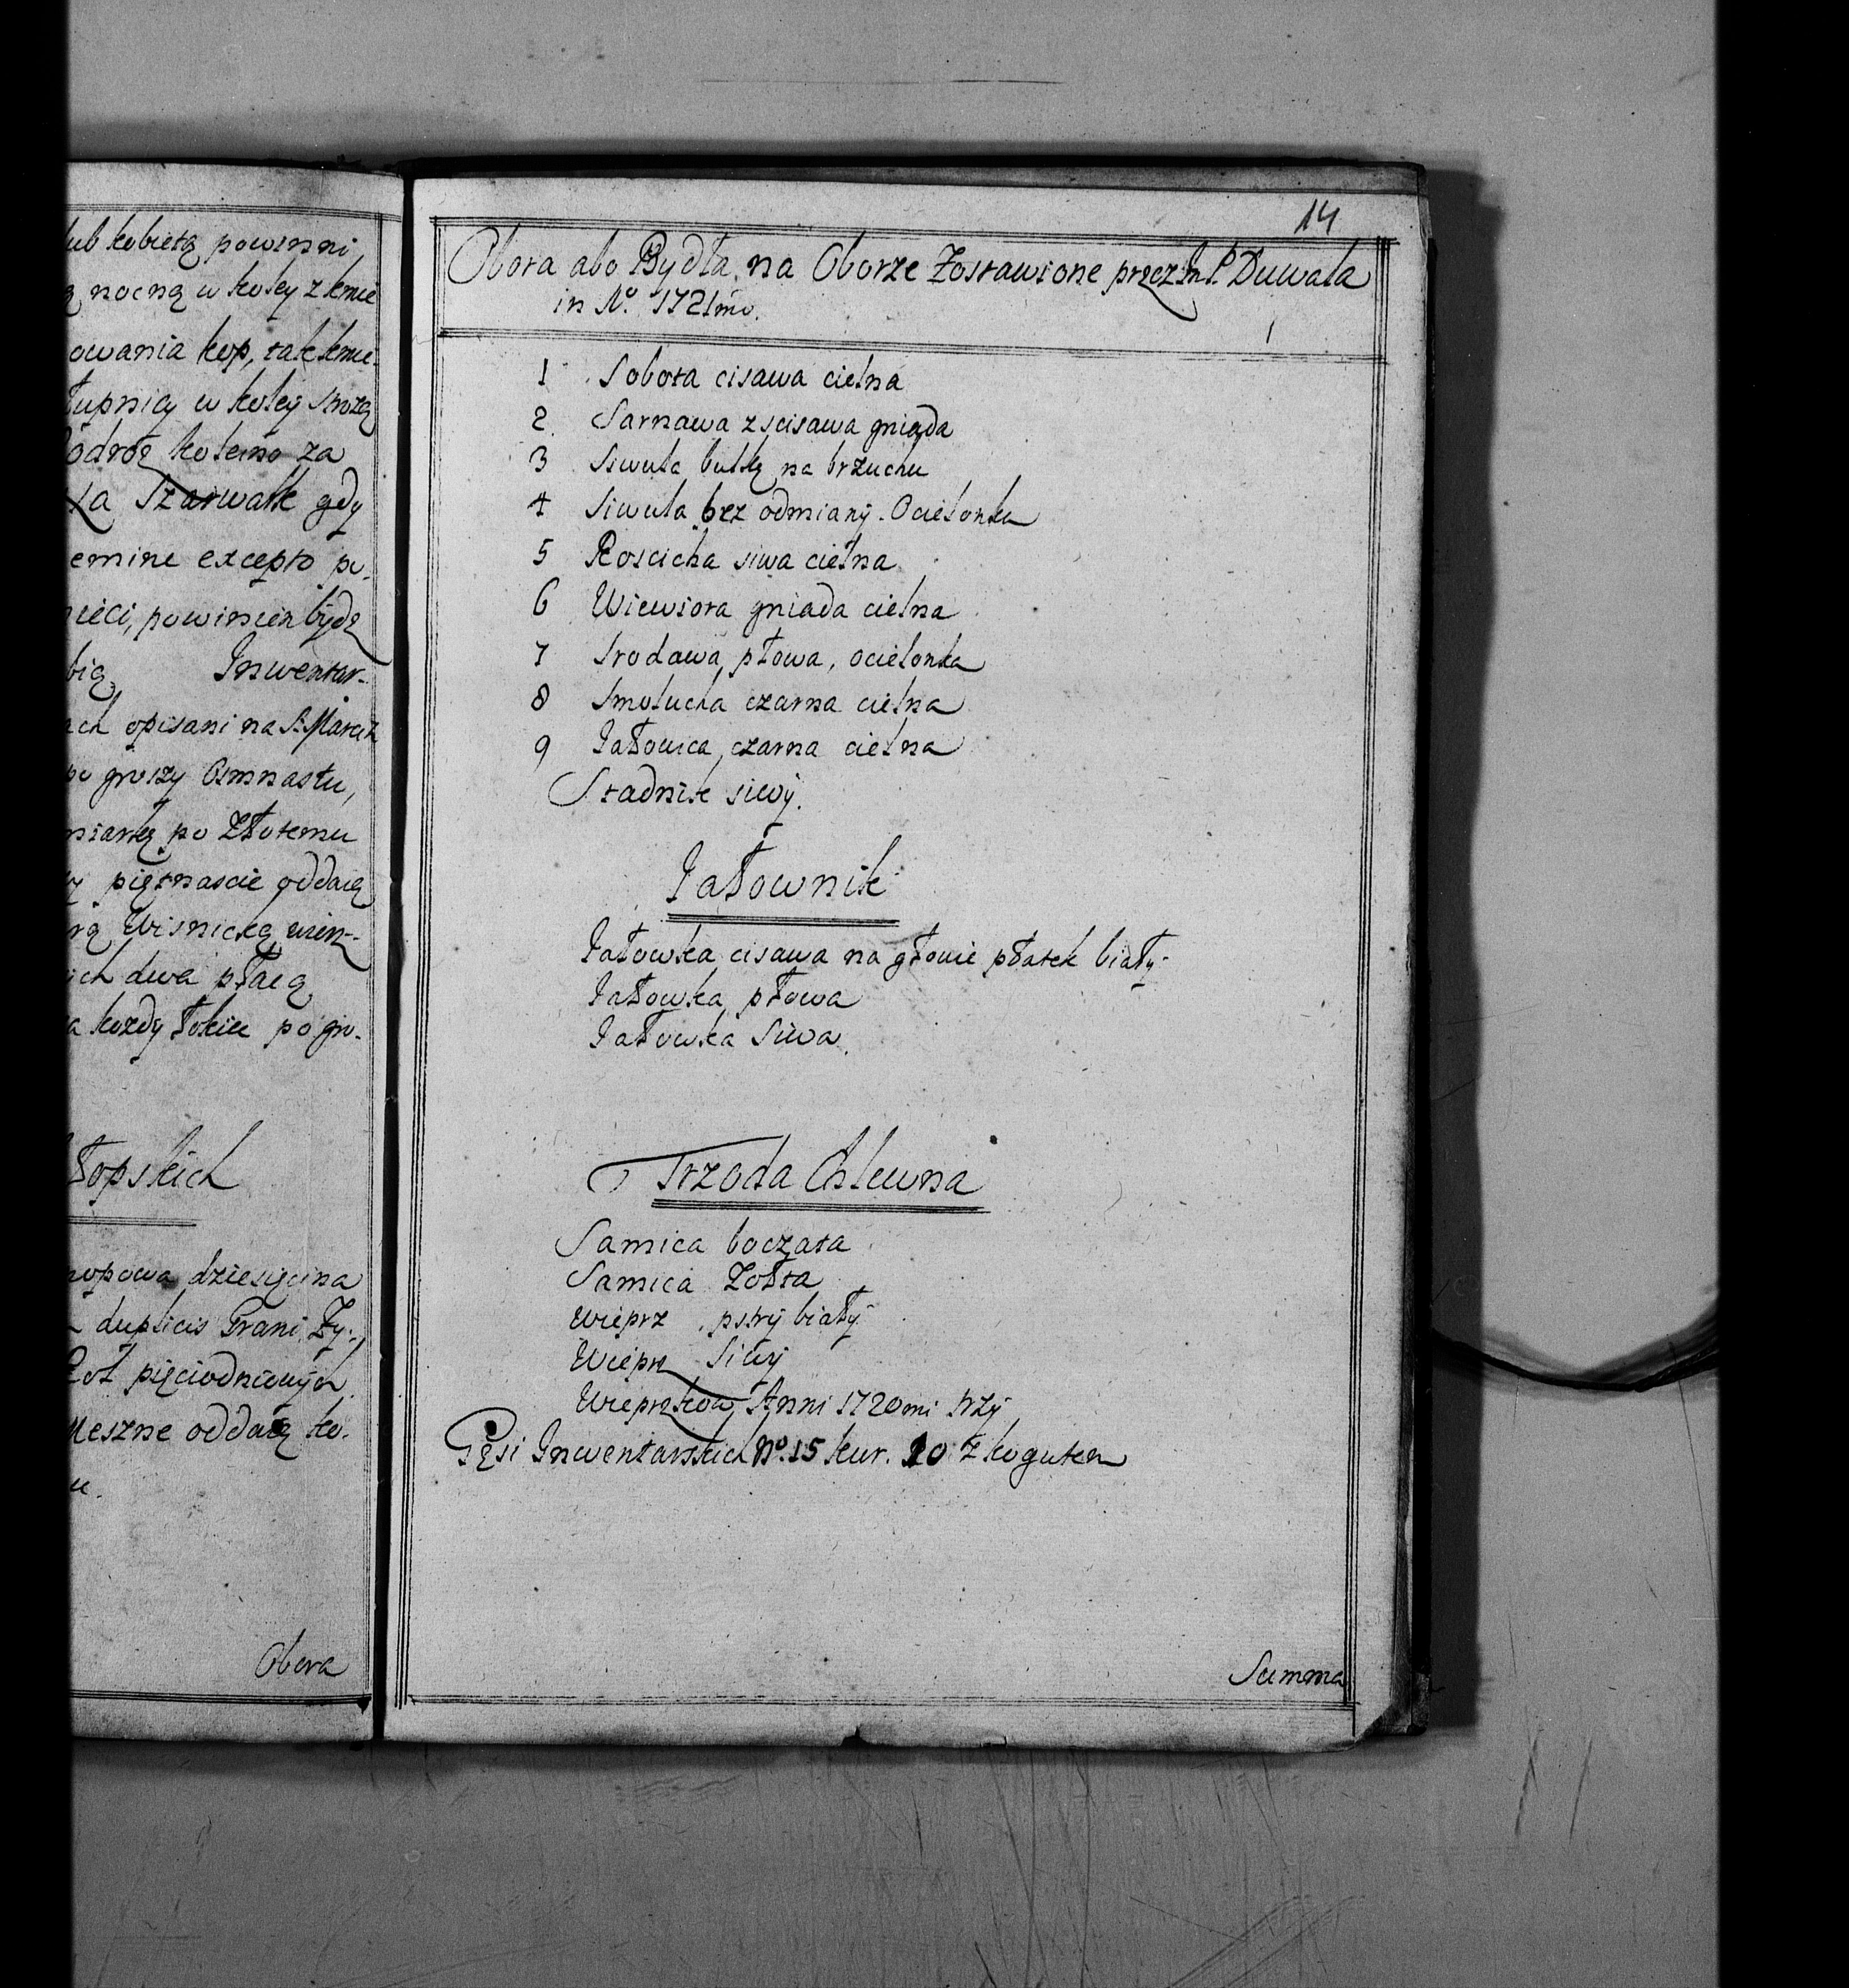 lub kobietą powinni
ą nocną w koley z kmie
owania kop, tak kmie-
łupnicy w koley stozą
Podroż koleino za
Szarwark gdy
emine excepto po-
nieci, powinien bydz
bią Inwentar-
ach opisani na S. Marcin
po groszy Osmnastu,
po Złotemu
piętnascie oddaią
rą Wisnicką wier-
ych dwa płacą
a kozdy łokiec po gro-
łopskich
nopowa dziesięcina
duplicis Grani Zy-
Zot pięciodniowych
Meszne oddaią ko-
u.
Obora
14
Obora abo Bydła na Oborze Zostawione przez Im P. Duwala
in No. 1721mo.
1 Sobota cisawa cielna
2. Sarnawa z scisawa gniada
3 Siwula bulką na brzuchu
4 Siwula bez odmiany. Ocielonka
5 Roscicha siwa cielna
6 Wiewiora gniada cielna
7 Srodawa płowa, ocielonka
8 Smolucha czarna cielna
9 Jałowica czarna cielna
Stadnik siwy.
Jałownik
Jałowka cisawa na głowie płatek biały
Jałowka płowa
Jałowka Siwa.
Trzoda Chlewna
Samica boczata
Samica Zołta
Wieprz pstry biały
Wieprz Siwy
Wieprzkow Anni 1720mi trzy
Gęsi Inwentarskich No. 15 kur. 20 z kogutem
Summa